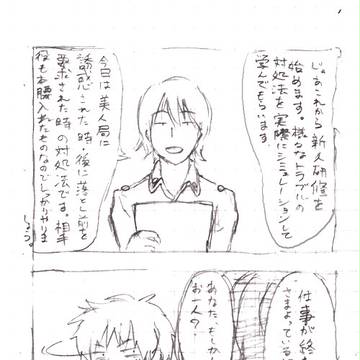 じゃあこれから新人研修を
始めます。様々なトラブルの
対処法を実際にシミュレーションして
学んでもらいます
今日は美人局に
誘惑された時・後に落とし前を
要求された時の対処法です。相手
役もお願入れたものなのでしっかりやりま
しょう。
仕事が終
さまよっている
あなた、もしか
お一人?